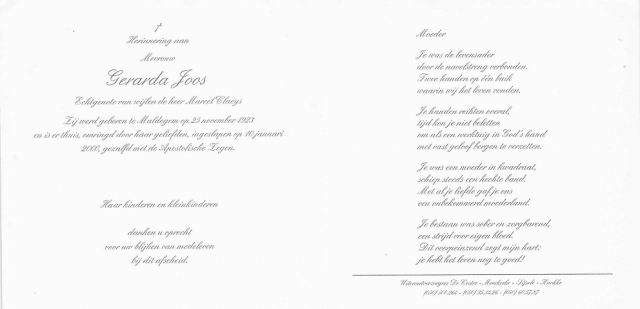 Herinnering aan
Mevrouw
Gerarda Joos
Echtgenote van wijlen de heer Marcel Claeys
Zij werd geboren te Maldegem op 25 november 1923
en is er thuis, omringd door haar geliefden, ingeslapen op 10 januari
2000, gezalfd met de Apostolische Zegen.
Haar kinderen en kleinkinderen
danken u oprecht
voor uw blijken van medeleven
bij dit afscheid.
Moeder
Je was de levensader
door de navelstreng verbonden.
Twee handen op één buik
waarin wij het leven vonden.
Je handen reikten overal,
tijd kon je niet beletten
om als een werktuig in God's hand
met vast geloof bergen te verzetten.
Je was een moeder in kwadraat,
schiep steeds een hechte band.
Met al je liefde gaf je ons
een onbekommerd moederland.
Je bestaan was sober en zorgbarend,
een strijd voor eigen bloed.
Dit overpeinzend zegt mijn hart:
je hebt het leven nog te goed!
Uitvaartverzorgers De Cester - Moerkerke - Sijsele - Knokke